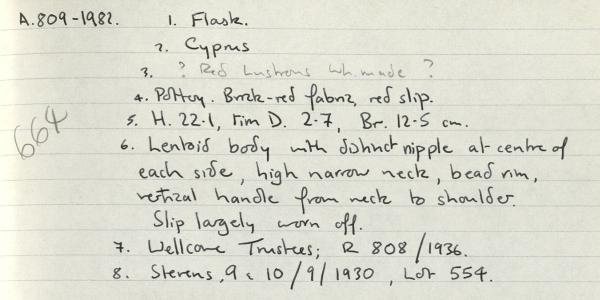 A.809-1982. 1. Flask.
2. Cyprus
3. ? Red Lustrous Wh. made ?
4. Pottery. Brick-red fabric, red slip.
5. H. 22.1, rim D. 2.7, Br. 12.5 cm.
664
6. Lentoid body with distinct nipple at centre of
each side, high narrow neck, bead rim,
vertical handle from neck to shoulder.
Slip largely worn off.
7. Wellcome Trustees; R 808/1936.
8. Stevens, 9 & 10/9/1930, Lot 554.